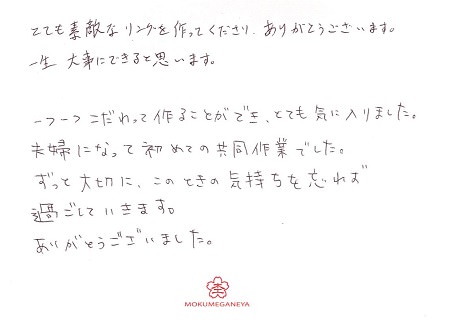 とても素敵なリングを作ってくださり、ありがとうございます。
一生 大事にできると思います。
一つ一つこだわって作ることができ、とても気に入りました。
夫婦になって初めての共同作業でした。
ずっと大切に、このときの気持ちを忘れず
過ごしていきます。
ありがとうございました。
MOKUMEGANEYA